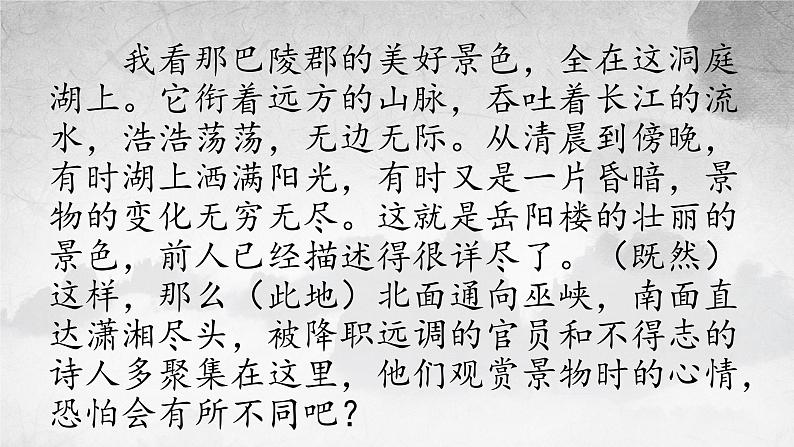 我看那巴陵郡的美好景色，全在这洞庭
湖上。它衔着远方的山脉，吞吐着长江的流
水，浩浩荡荡，无边无际。从清晨到傍晚，
有时湖上洒满阳光，有时又是一片昏暗，景
物的变化无穷无尽。这就是岳阳楼的壮丽的
景色，前人已经描述得很详尽了。（既然）
这样，那么（此地）北面通向巫峡，南面直
达潇湘尽头，被降职远调的官员和不得志的
诗人多聚集在这里，他们观赏景物时的心情，
恐怕会有所不同吧？